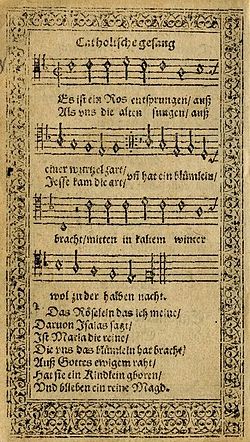 Catholischegesang
Es ist ein Ros entsprungen/ auß
Als vns die alten sungen/ auß
einer wurtzel zart/ vñ hat ein blümlein/
Jesse kam die art/
bracht/mitten in kaltem winter
wol zu der halben nacht.
Das Röselein das ich meine/
Daruon Isaias sagt/
Ist Maria die reine/
Die vns das blümlein hat bracht/
Auß Gottes ewigem raht/
Hat sie ein Kindlein gboren/
Vnd blieben ein reine Magd.